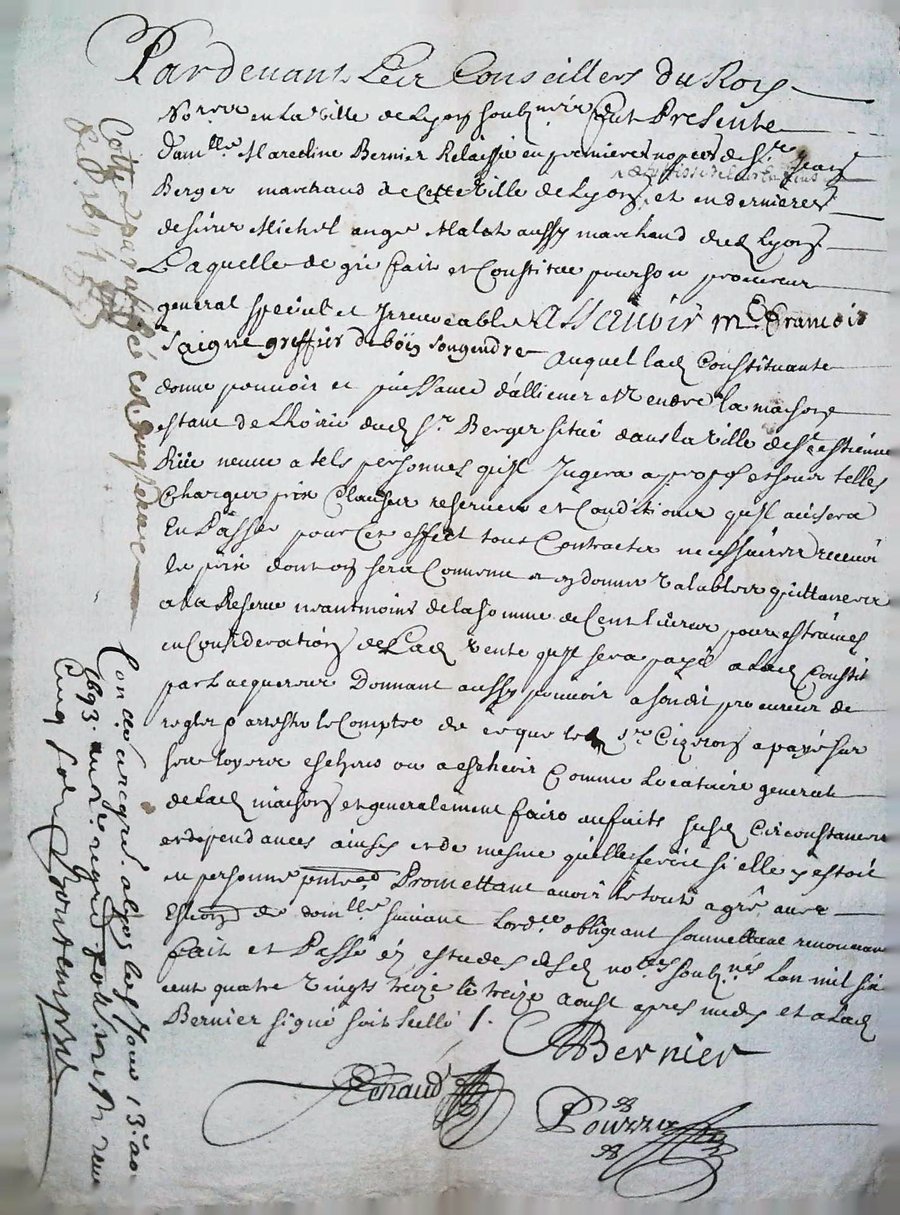 Pardevant Les Conseillers du Roy
No.res en La Ville de Lyon soubz.nés fut Presente
Dam.lle Marecline Bernier Relaissée en premieres nopces de S.r Jean
Berger marchand de Cette Ville de Lyon, et en dernieres
de sieur Michel ange Malot aussy marchand dud Lyon
Laquelle de gré fait et Constitue pour son procureur
general special et Irrevocable assavoir m.e francois
auquel lad Constituante
donne pouvoir et puissance d'alliener et Vendre la maison
estant de Lhoirie dud S.r Berger situé dans la Ville de S.t estienne
Rüe neuve a tels personnes qu'il Jugera a propos et sous telles
Charges prix Clauses reserves et Conditions qu'il advisera
En Passer pour Cet effect tous Contractes necessaires recevoir
le prix dont on sera Convenu et en donner Valables quittances
a La Reserve neantmoins de la somme de Cent livres pour estraines
en Consideration de Lad Vente qu'il sera payé a Lad Constit
par Lacquereur Donnant aussy pouvoir a son dit procureur de
regler & arrester le Compte de ce que le S.r Cizeron a payé sur
son loyer escheus ou a escheoir Comme Locataire general
de Lad maison et generalement faire au faits susd Circonstances
et dependances ainsy et de mesme qu'elle feroit si elle y estoit
en personne Promettant avoir le tout agrée avec
de dom.lle suivant Lord.ce obligeant soumettant renoncant
fait et Passé és estudes desd no.res soubz.nés Lan mil six
cent quatre Vingts treize le treize aoust apres midy et a Lad
Bernier signé soit scellé /.
Bernier
Renaud
Pouzza
Cotté paraffé
Con.lé au regre. a lyon les Jour 13.e ao
1693. au
Cinq sols